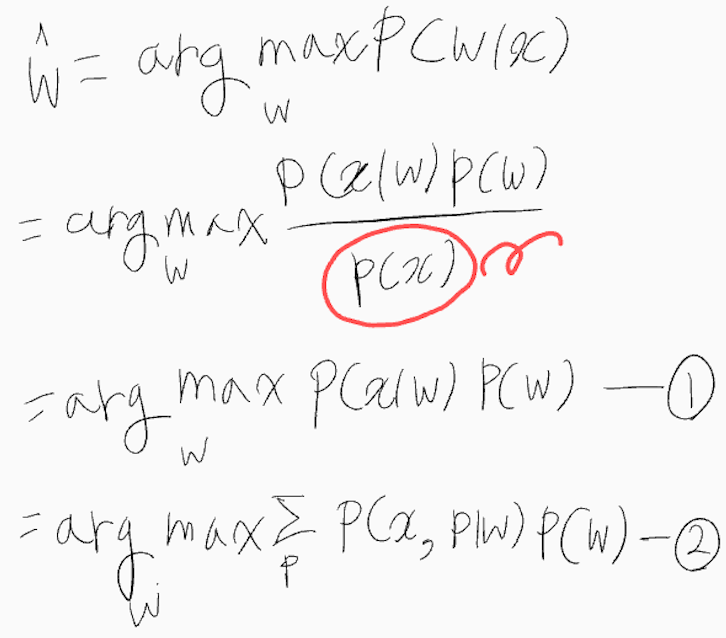 ŵ = arg max_w P(w|x)
= arg max_w p(x|w)p(w) / p(x)
= arg max_w P(x|w) P(w) — ①
= arg max_w Σ_p P(x, p|w) p(w) — ②